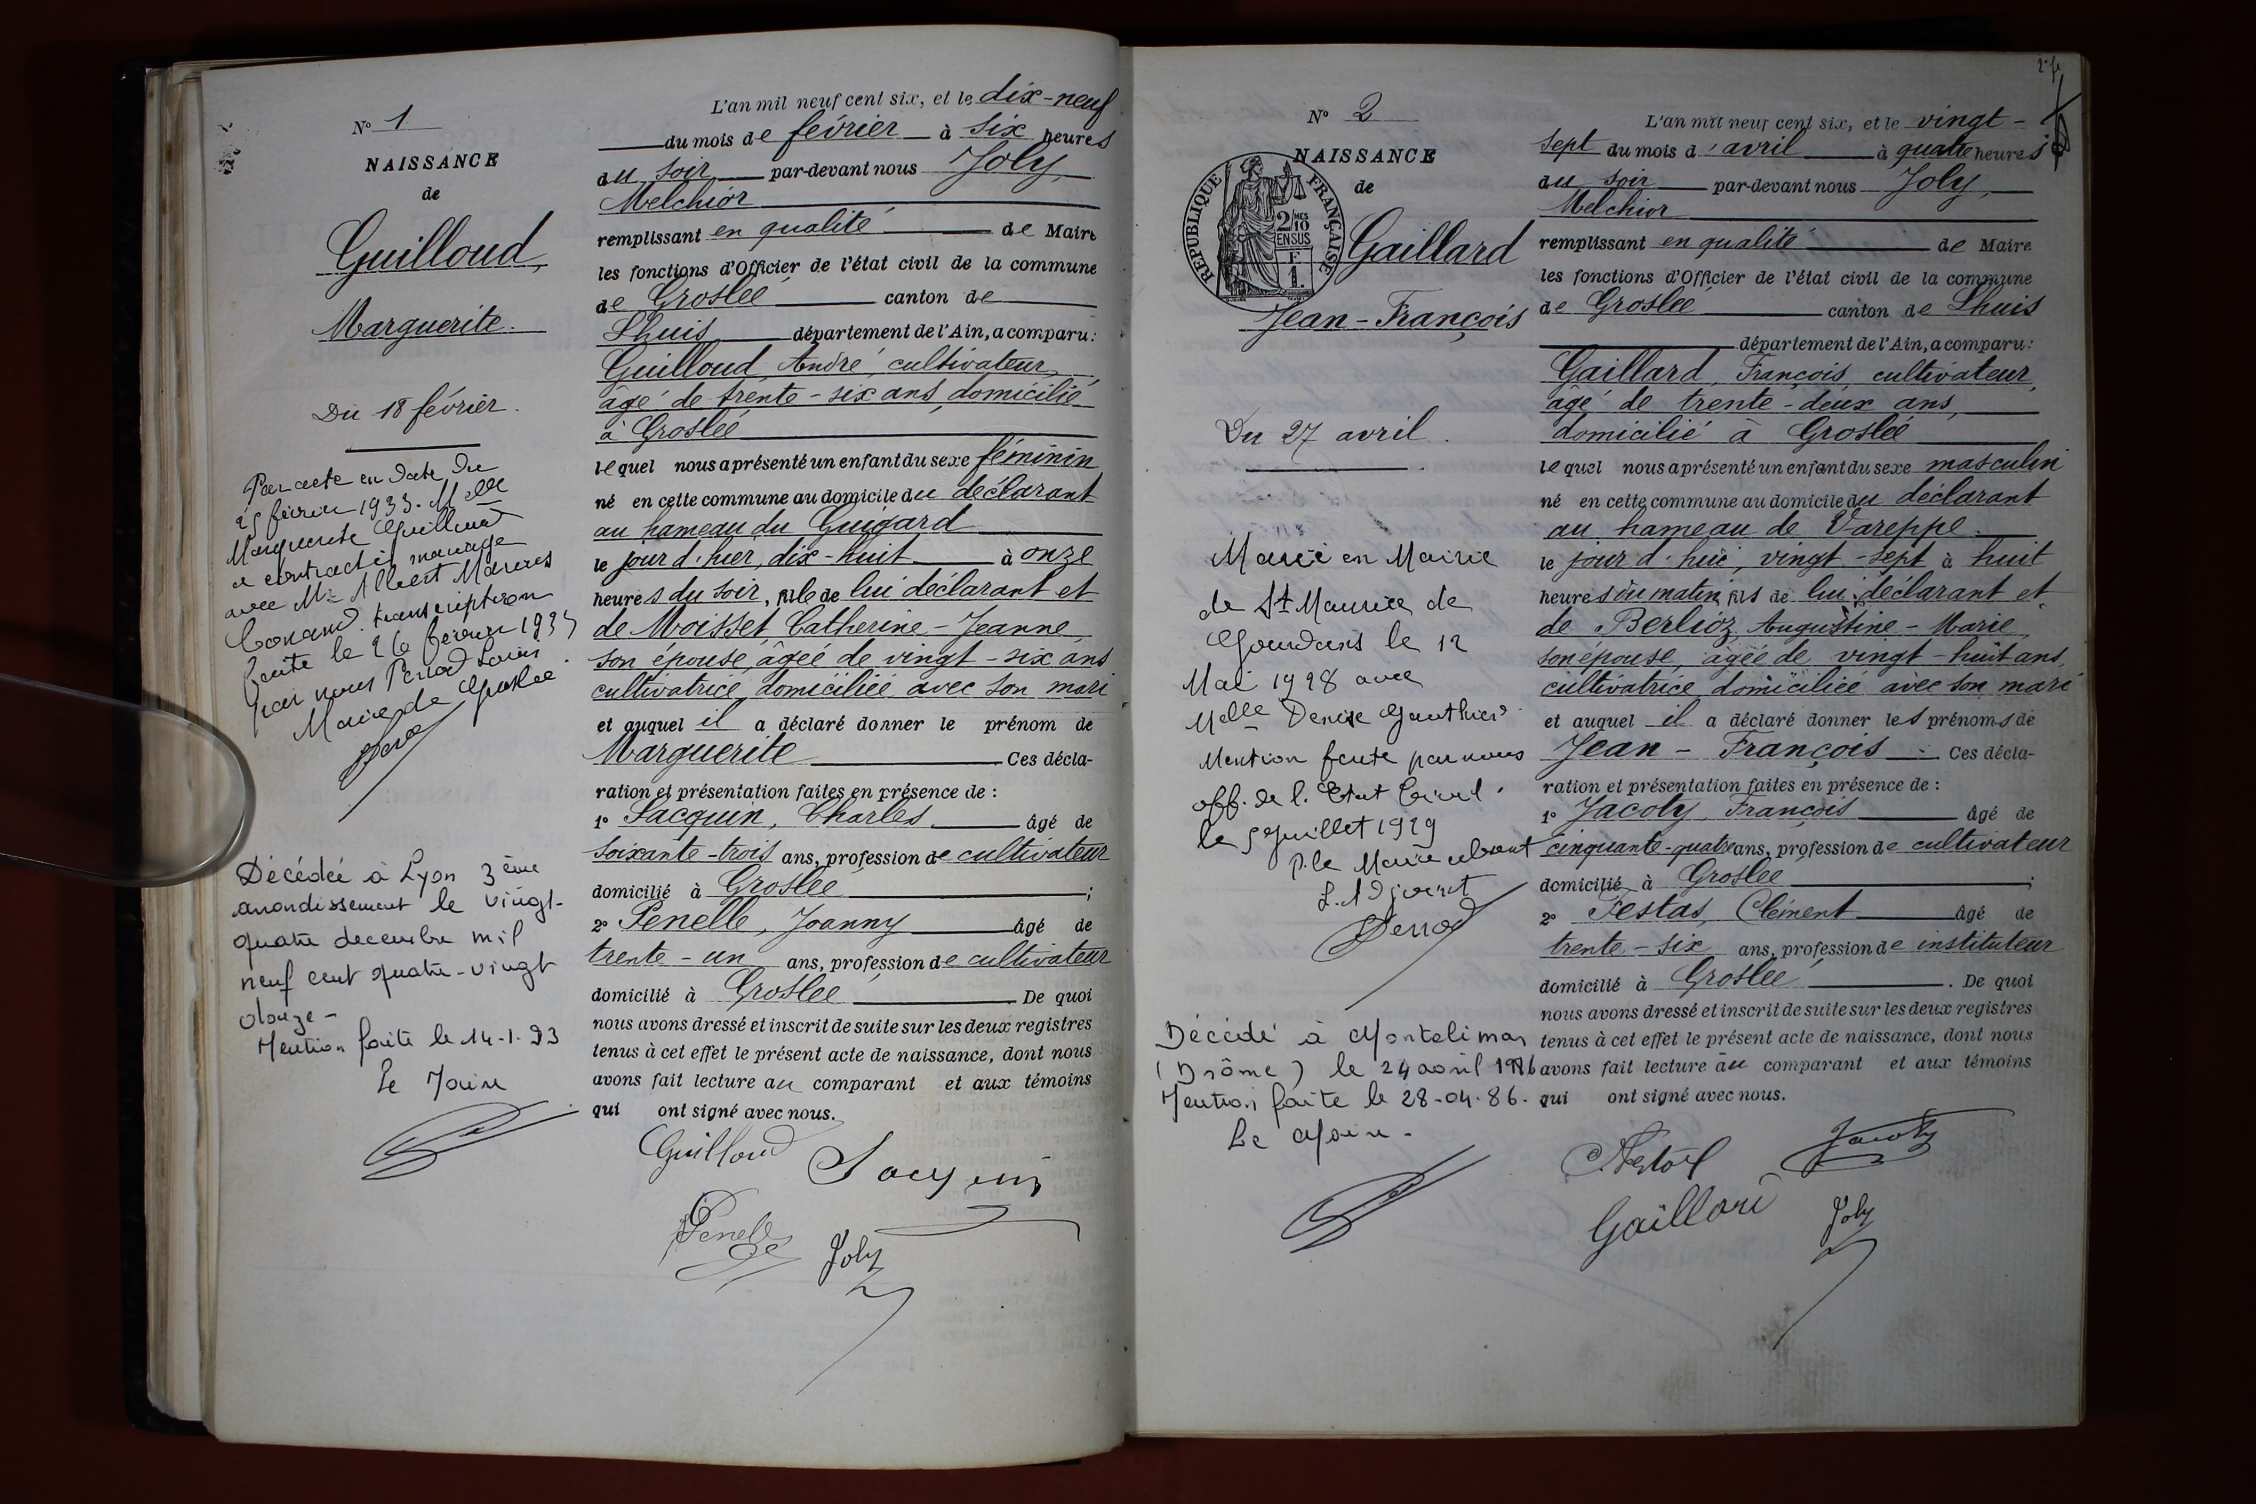 N° 1
NAISSANCE
de
Guilloud,
Marguerite.
Du 18 février.
Par acte en date du
25 février 1933. Melle
Marguerite Guilloud
a contracté mariage
avec Mr Albert
transcription
faite le 26 février 193
par nous Perrod Louis
Maire de Groslée.
Décédée à Lyon 3ème
arrondissement le vingt-
quatre décembre mil
neuf cent quatre-vingt
douze-
Mention faite le 14-1-93
Le Maire
L'an mil neuf cent six, et le dix-neuf
du mois de février à six heures
du soir par-devant nous Joly,
Melchior
remplissant en qualité de Maire
les fonctions d'Officier de l'état civil de la commune
de Groslée canton de
Lhuis département de l'Ain, a comparu:
Guilloud André, cultivateur,
âgé de trente-six ans, domicilié
à Groslée
lequel nous a présenté un enfant du sexe féminin
né en cette commune au domicile du déclarant
au hameau du Guigard
le jour d'hier, dix-huit à onze
heures du soir, fille de lui déclarant et
de Moisset, Catherine-Jeanne,
son épouse, âgée de vingt-six ans
cultivatrice, domiciliée avec son mari
et auquel il a déclaré donner le prénom de
Marguerite Ces décla-
ration et présentation faites en présence de :
1° Sacquin, Charles âgé de
soixante-trois ans, profession de cultivateur
domicilié à Groslée ;
2° Penelle, Joanny âgé de
trente-un ans, profession de cultivateur
domicilié à Groslée . De quoi
nous avons dressé et inscrit de suite sur les deux registres
tenus à cet effet le présent acte de naissance, dont nous
avons fait lecture au comparant et aux témoins
qui ont signé avec nous.
Guilloud Sacquin
Penelle Joly
2e f
N° 2
NAISSANCE
de
RÉPUBLIQUE FRANÇAISE
2/10 MES
EN SUS
F
1.
Gaillard
Jean-François
Du 27 avril.
Marié en Mairie
de St Maurice de
Gourdans le 12
Mai 1928 avec
Melle Denise Gauthier.
Mention faite par nous
off. de l. Etat Civil.
le 5 Juillet 1929
P. le Maire absent
L. Adjoint
Perrod
Décédé à Montélimar
(Drôme) le 24 avril 1986
Mention faite le 28-04-86.
Le Maire.
L'an mil neuf cent six, et le vingt-
sept du mois d'avril à quatre heures
du soir par-devant nous Joly,
Melchior
remplissant en qualité de Maire
les fonctions d'Officier de l'état civil de la commune
de Groslée canton de Lhuis
département de l'Ain, a comparu:
Gaillard, François, cultivateur,
âgé de trente-deux ans,
domicilié à Groslée
lequel nous a présenté un enfant du sexe masculin
né en cette commune au domicile du déclarant
au hameau de Vareppe.
le jour d'hui, vingt-sept à huit
heures du matin, fils de lui déclarant et
de Berlioz, Augustine-Marie,
son épouse, âgée de vingt-huit ans,
cultivatrice, domiciliée avec son mari
et auquel il a déclaré donner les prénoms de
Jean-François . Ces décla-
ration et présentation faites en présence de :
1° Jacoly, François âgé de
cinquante-quatre ans, profession de cultivateur
domicilié à Groslée ;
2° Festas, Clément âgé de
trente-six ans, profession de instituteur
domicilié à Groslée . De quoi
nous avons dressé et inscrit de suite sur les deux registres
tenus à cet effet le présent acte de naissance, dont nous
avons fait lecture au comparant et aux témoins
qui ont signé avec nous.
Jacoly
Gaillard Joly